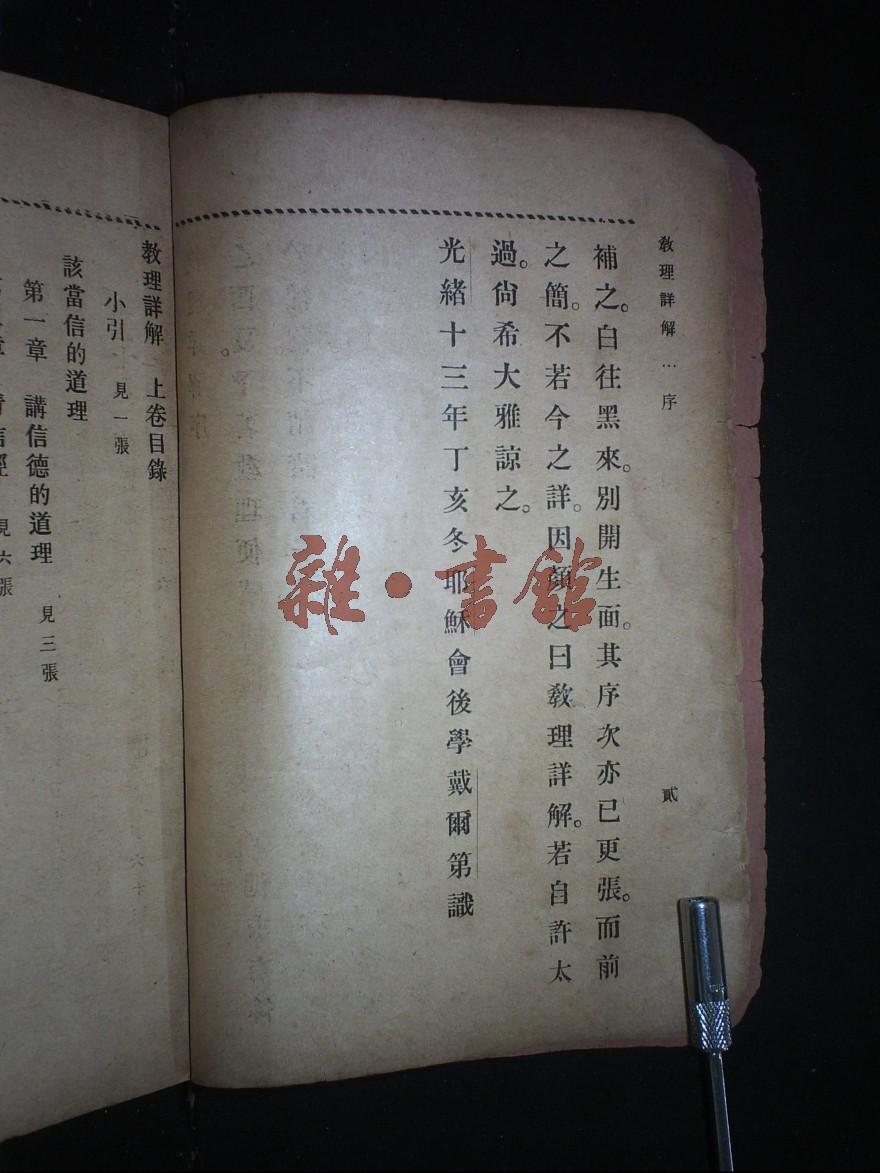 教理詳解…序
貳
補之。白往黑來。別開生面。其序次亦已更張。而前
之簡。不若今之詳。因顏之曰教理詳解。若自許太
過。尙希大雅諒之。
光緒十三年丁亥冬耶穌會後學戴爾第識
教理詳解 上卷目錄
小引 見一張
該當信的道理
第一章 講信德的道理 見三張
信經 見六張
雜·書館